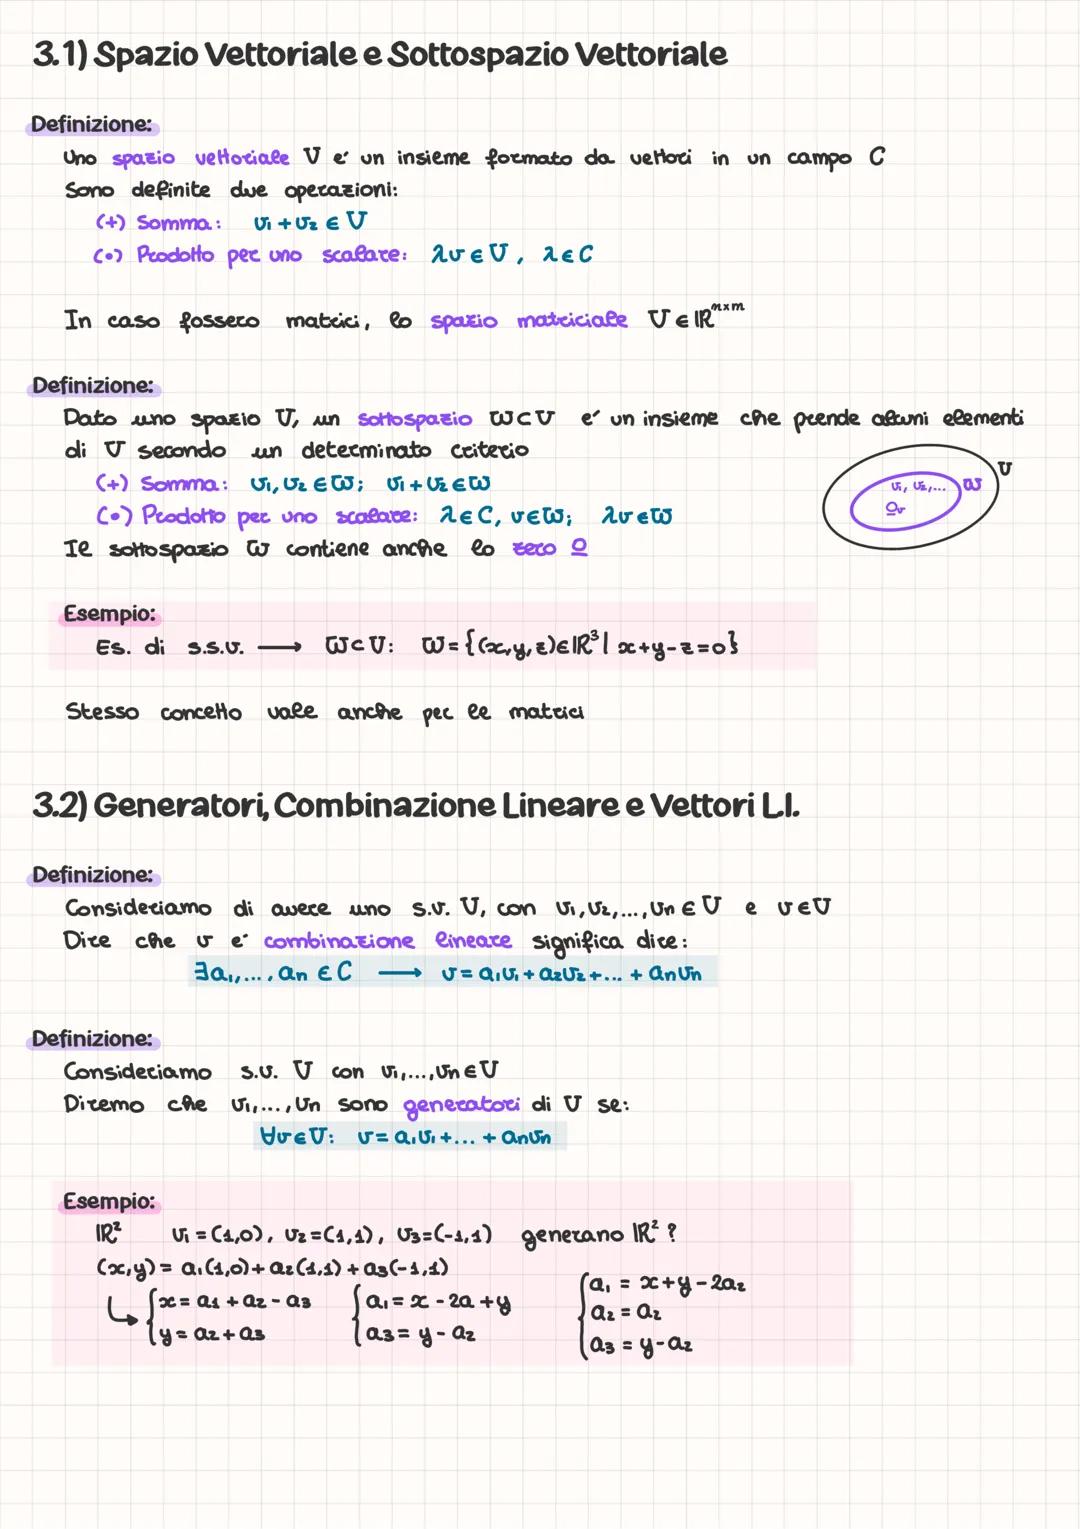 3.1) Spazio Vettoriale e Sottospazio Vettoriale
Definizione:
Uno spazio vettoriale V e' un insieme formato da vettori in un campo C
Sono definite due operazioni:
(+) Somma: v₁+v₂ ∈ V
(•) Prodotto per uno scalare: λv ∈ V, λ ∈ C
In caso fossero matrici, lo spazio matriciale V ∈ ℝⁿˣᵐ
Definizione:
Dato uno spazio V, un sottospazio W⊂V e' un insieme che prende alcuni elementi
di V secondo un determinato criterio
(+) Somma: v₁,v₂ ∈ W; v₁+v₂ ∈ W
(•) Prodotto per uno scalare: λ∈C, v∈W; λv∈W
Il sottospazio W contiene anche lo zero 0
V
v₁, v₂,... W
0v
Esempio:
Es. di s.s.v. ⟶ W⊂V: W={(x,y,z)∈ℝ³| x+y-z=0}
Stesso concetto vale anche per le matrici
3.2) Generatori, Combinazione Lineare e Vettori L.I.
Definizione:
Consideriamo di avere uno s.v. V, con v₁,v₂,...,vn ∈ V e v∈V
Dire che v e' combinazione lineare significa dire:
∃a₁,..., an ∈ C ⟶ v = a₁v₁ + a₂v₂ +... + anvn
Definizione:
Consideriamo s.v. V con v₁,...,vn ∈ V
Diremo che v₁,...,vn sono generatori di V se:
∀v∈V: v = a₁v₁ +... + anvn
Esempio:
ℝ² v₁ = (1,0), v₂=(1,1), v₃=(-1,1) generano ℝ² ?
(x,y) = a₁(1,0)+a₂(1,1)+a₃(-1,1)
↳ { x = a₁ + a₂ - a₃ { a₁ = x - 2a + y { a₁ = x+y-2a₂
y = a₂+a₃ a₃ = y - a₂ a₂ = a₂
a₃ = y-a₂